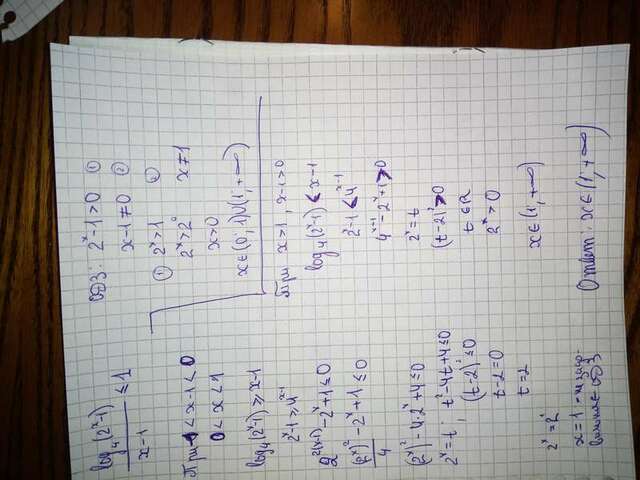 log₄(2ˣ-1)/(x-1) ≤ 1
ОДЗ: 2ˣ-1>0 ①
x-1≠0 ②
① 2ˣ>1
② x≠1
2ˣ>2⁰
x>0
x∈(0;1)∪(1;+∞)
При x-1<0
0<x<1
log₄(2ˣ-1)≥x-1
2ˣ-1≥4ˣ⁻¹
2²⁽ˣ⁻¹⁾-2ˣ+1≤0
(2ˣ)²/4-2ˣ+1≤0
(2ˣ)²-4·2ˣ+4≤0
2ˣ=t; t²-4t+4≤0
(t-2)²≤0
t-2=0
t=2
2ˣ=2¹
x=1 -
ОДЗ
При x>1, x-1>0
log₄(2ˣ-1)≤x-1
2ˣ-1≤4ˣ⁻¹
4ˣ⁻¹-2ˣ+1≥0
2ˣ=t
(t-2)²≥0
t∈R
2ˣ>0
x∈(1;+∞)
Ответ: x∈(1;+∞)